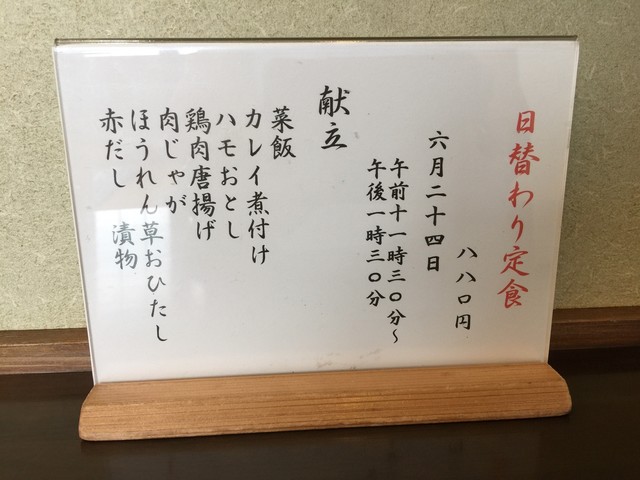 日替わり定食
八八〇円
六月二十四日
午前十一時三〇分～
午後一時三〇分
献立
菜飯
カレイ煮付け
ハモおとし
鶏肉唐揚げ
肉じゃが
ほうれん草おひたし
赤だし 漬物